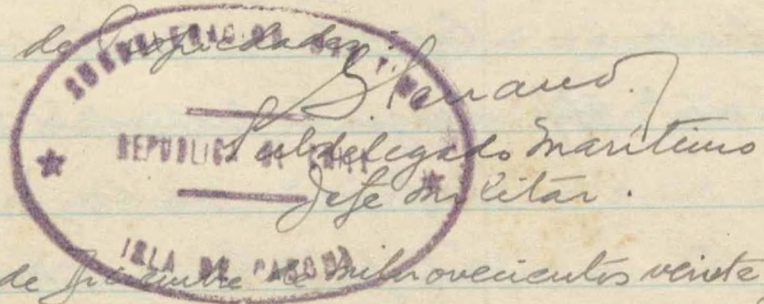 de Propiedades.
SUBDELEGACION
Serrano.
REPUBLICA DE CHILE
Subdelegado Maritimo
Jefe Militar.
ISLA DE PASCUA
de Diciembre de mil novecientos veinte